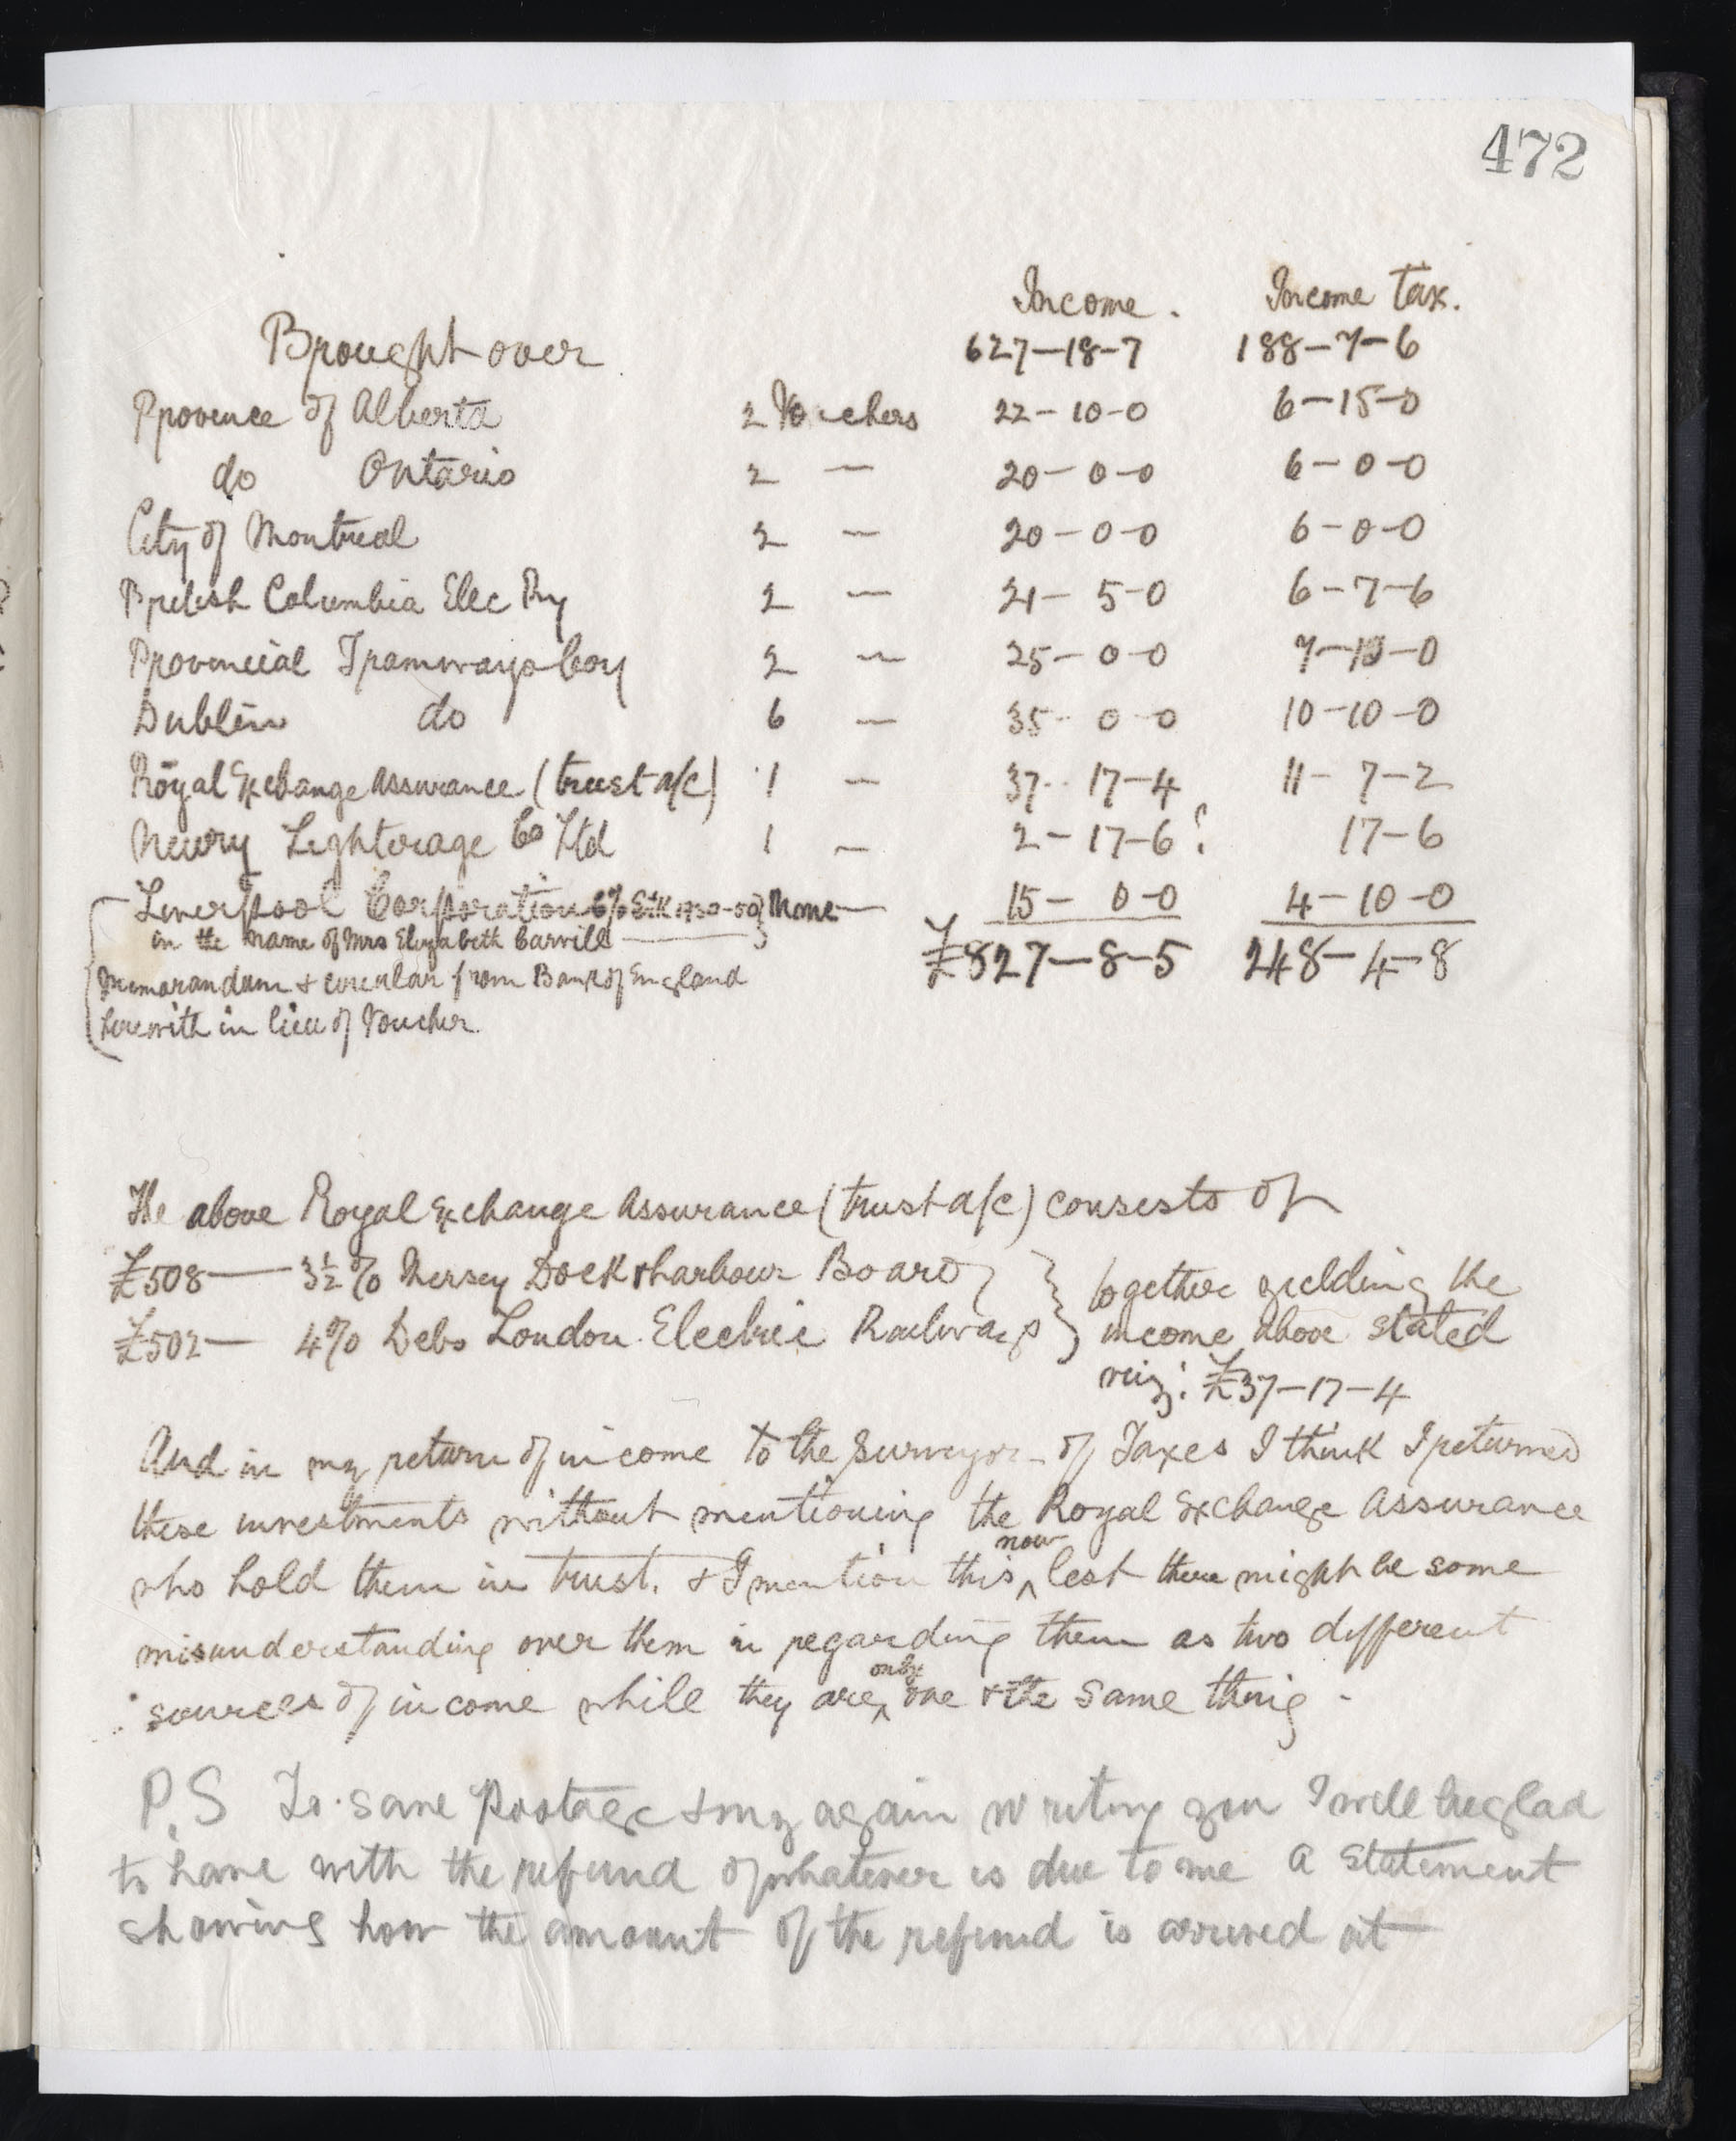 472
Income. Income Tax.
Brought over 627-18-7 188-7-6
Province of Alberta 2 Vouchers 22-10-0 6-15-0
do Ontario 2 — 20-0-0 6-0-0
City of Montreal 2 — 20-0-0 6-0-0
British Columbia Elec Ry 2 — 21-5-0 6-7-6
Provincial Tramways Coy 2 — 25-0-0 7-10-0
Dublin do 6 — 35-0-0 10-10-0
Royal Exchange Assurance (trust a/c) 1 — 37-17-4 11-7-2
Newry Lighterage Co Ltd 1 — 2-17-6? 17-6
Liverpool Corporation 6% Stk 1930-50} None — 15-0-0 4-10-0
in the name of Mrs Elizabeth Carvill — £827-8-5 248-4-8
Memorandum & circular from Bank of England
herewith in lieu of Voucher.
The above Royal Exchange Assurance (trust a/c) consists of
£508 — 3½% Mersey Dock & harbour Board } together yielding the
£502 — 4% Debs London Electric Railways } income above stated
viz: £37-17-4
And in my return of income to the Surveyor of Taxes I think I returned
these investments without mentioning the Royal Exchange Assurance
who hold them in trust. & I mention this now lest there might be some
misunderstanding over them in regarding them as two different
sources of income while they are only one & the same thing -
P.S To save Postage & my again writing you I will be glad
to have with the refund of whatever is due to me a statement
showing how the amount of the refund is arrived at